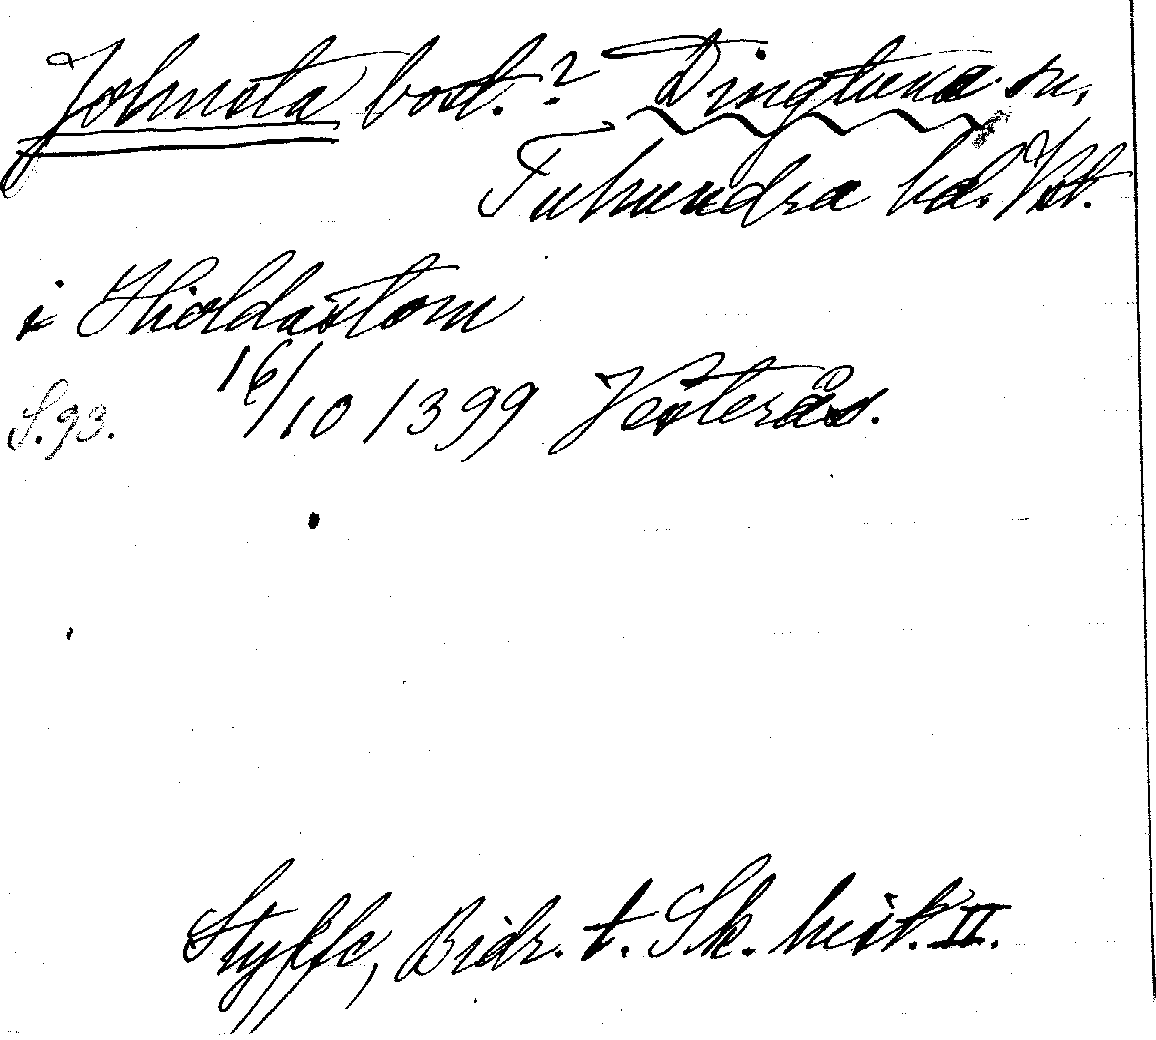 Jobmsta bost.? Dingtuna sn,
Tuhundra hd. Vstl.
i Hioldastom
S. 93. 16/10 1399 Vesterås.
Styffe, Bidr. t. Sk. hist. II.